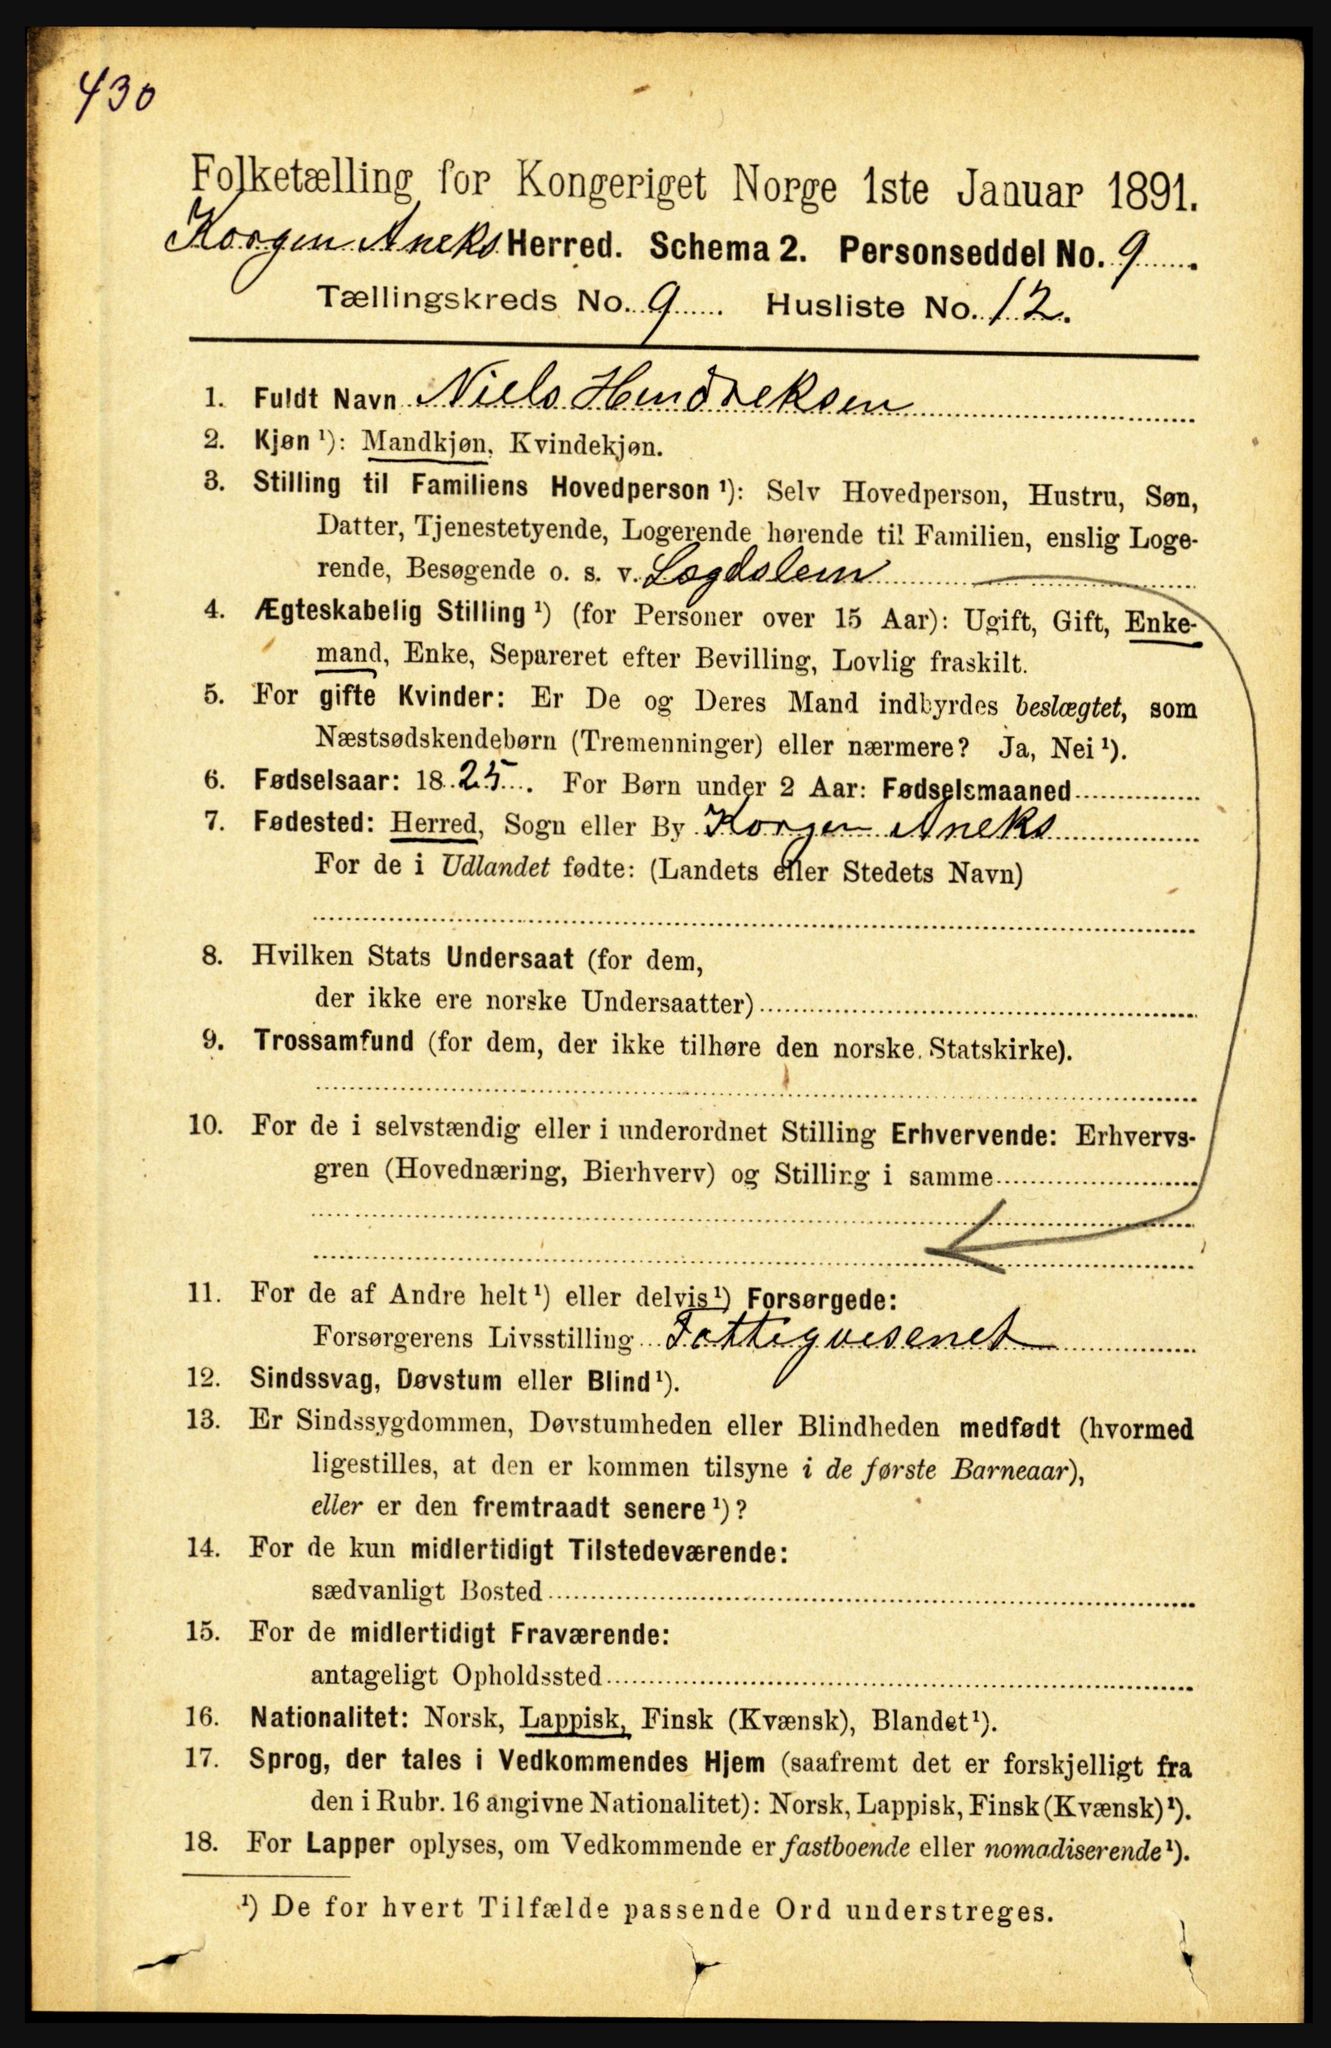 430
Folketælling for Kongeriget Norge 1ste Januar 1891.
Korgen Aneks Herred. Schema 2. Personseddel No. 9
Tællingskreds No. 9 Husliste No. 12.
1. Fuldt Navn Niels Hendreksen
2. Kjøn ¹): Mandkjøn, Kvindekjøn.
3. Stilling til Familiens Hovedperson ¹): Selv Hovedperson, Hustru, Søn,
Datter, Tjenestetyende, Logerende hørende til Familien, enslig Loge-
rende, Besøgende o. s. v. Lægdslem
4. Ægteskabelig Stilling ¹) (for Personer over 15 Aar): Ugift, Gift, Enke-
mand, Enke, Separeret efter Bevilling, Lovlig fraskilt.
5. For gifte Kvinder: Er De og Deres Mand indbyrdes beslægtet, som
Næstsødskendebørn (Tremenninger) eller nærmere? Ja, Nei ¹).
6. Fødselsaar: 1825. For Børn under 2 Aar: Fødselsmaaned
7. Fødested: Herred, Sogn eller By Korgen Aneks
For de i Udlandet fødte: (Landets eller Stedets Navn)
8. Hvilken Stats Undersaat (for dem,
der ikke ere norske Undersaatter)
9. Trossamfund (for dem, der ikke tilhøre den norske Statskirke).
10. For de i selvstændig eller i underordnet Stilling Erhvervende: Erhvervs-
gren (Hovednæring, Bierhverv) og Stilling i samme
11. For de af Andre helt ¹) eller delvis ¹) Forsørgede:
Forsørgerens Livsstilling Fattigvesenet
12. Sindssvag, Døvstum eller Blind ¹).
13. Er Sindssygdommen, Døvstumheden eller Blindheden medfødt (hvormed
ligestilles, at den er kommen tilsyne i de første Barneaar),
eller er den fremtraadt senere ¹)?
14. For de kun midlertidigt Tilstedeværende:
sædvanligt Bosted
15. For de midlertidigt Fraværende:
antageligt Opholdssted
16. Nationalitet: Norsk, Lappisk, Finsk (Kvænsk), Blandet ¹).
17. Sprog, der tales i Vedkommendes Hjem (saafremt det er forskjelligt fra
den i Rubr. 16 angivne Nationalitet): Norsk, Lappisk, Finsk (Kvænsk) ¹).
18. For Lapper oplyses, om Vedkommende er fastboende eller nomadiserende ¹).
¹) De for hvert Tilfælde passende Ord understreges.